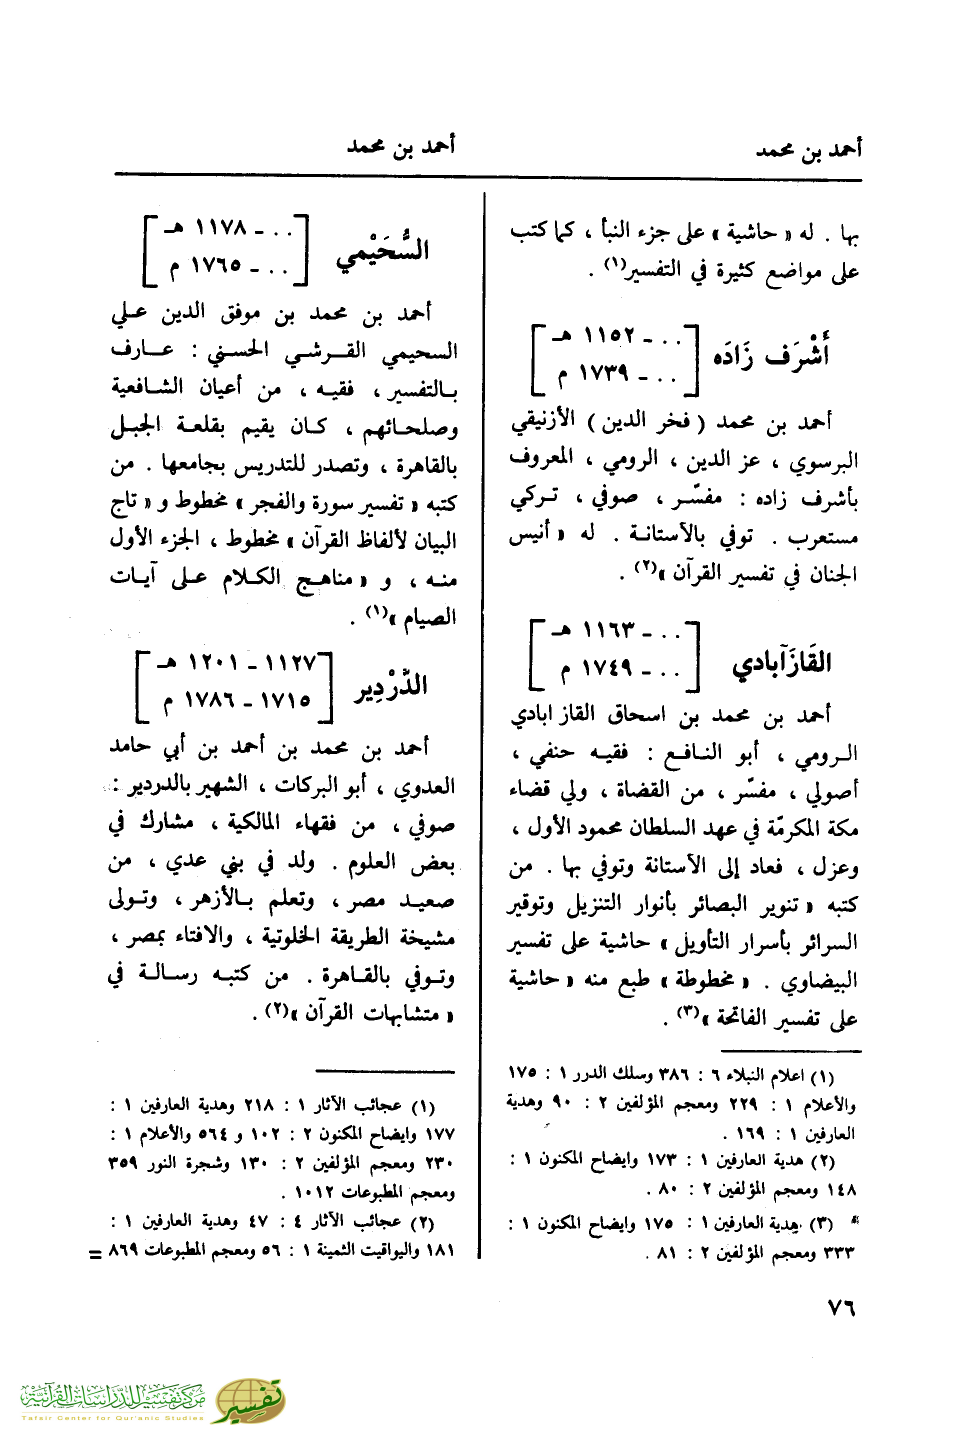 أحمد بن محمد
أحمد بن محمد
بها . له « حاشية » على جزء النبأ ، كما كتب
على مواضع كثيرة في التفسير(١) .
أَشْرَف زَادَه
[ . . ـ ١١٥٢ هـ
. . ـ ١٧٣٩ م ]
أحمد بن محمد ( فخر الدين ) الأزنيقي
البرسوي ، عز الدين ، الرومي ، المعروف
بأشرف زاده : مفسّر ، صوفي ، تركي
مستعرب . توفي بالآستانة . له « أنيس
الجنان في تفسير القرآن »(٢) .
القَازَآبادي
[ . . ـ ١١٦٣ هـ
. . ـ ١٧٤٩ م ]
أحمد بن محمد بن اسحاق القاز ابادي
الرومي ، أبو النافع : فقيه حنفي ،
أصولي ، مفسّر ، من القضاة ، ولي قضاء
مكة المكرمّة في عهد السلطان محمود الأول ،
وعزل ، فعاد إلى الآستانة وتوفي بها . من
كتبه « تنوير البصائر بأنوار التنزيل وتوقير
السرائر بأسرار التأويل » حاشية على تفسير
البيضاوي . « مخطوطة » طبع منه « حاشية
على تفسير الفاتحة »(٣) .
(١) اعلام النبلاء ٦ : ٣٨٦ وسلك الدرر ١ : ١٧٥
والأعلام ١ : ٢٢٩ ومعجم المؤلفين ٢ : ٩٠ وهدية
العارفين ١ : ١٦٩ .
(٢) هدية العارفين ١ : ١٧٣ وايضاح المكنون ١ :
١٤٨ ومعجم المؤلفين ٢ : ٨٠ .
* (٣) هدية العارفين ١ : ١٧٥ وايضاح المكنون ١ :
٣٣٣ ومعجم المؤلفين ٢ : ٨١ .
السُّحَيْمي
[ . . ـ ١١٧٨ هـ
. . ـ ١٧٦٥ م ]
أحمد بن محمد بن موفق الدين علي
السحيمي القرشي الحسني : عارف
بالتفسير ، فقيه ، من أعيان الشافعية
وصلحائهم ، كان يقيم بقلعة الجبل
بالقاهرة ، وتصدر للتدريس بجامعها . من
كتبه « تفسير سورة والفجر » مخطوط و « تاج
البيان لألفاظ القرآن » مخطوط ، الجزء الأول
منه ، و « مناهج الكلام على آيات
الصيام »(١) .
الدَّرْدِير
[ ١١٢٧ ـ ١٢٠١ هـ
١٧١٥ ـ ١٧٨٦ م ]
أحمد بن محمد بن أحمد بن أبي حامد
العدوي ، أبو البركات ، الشهير بالدردير :
صوفي ، من فقهاء المالكية ، مشارك في
بعض العلوم . ولد في بني عدي ، من
صعيد مصر ، وتعلم بالأزهر ، وتولى
مشيخة الطريقة الخلوتية ، والافتاء بمصر ،
وتوفي بالقاهرة . من كتبه رسالة في
« متشابهات القرآن »(٢) .
(١) عجائب الآثار ١ : ٢١٨ وهدية العارفين ١ :
١٧٧ وايضاح المكنون ٢ : ١٠٢ و ٥٦٤ والأعلام ١ :
٢٣٠ ومعجم المؤلفين ٢ : ١٣٠ وشجرة النور ٣٥٩
ومعجم المطبوعات ١٠١٢ .
(٢) عجائب الآثار ٤ : ٤٧ وهدية العارفين ١ :
١٨١ واليواقيت الثمينة ١ : ٥٦ ومعجم المطبوعات ٨٦٩ =
٧٦
مركز تفسير للدراسات القرآنية
Tafsir Center for Qur'anic Studies
تفسير